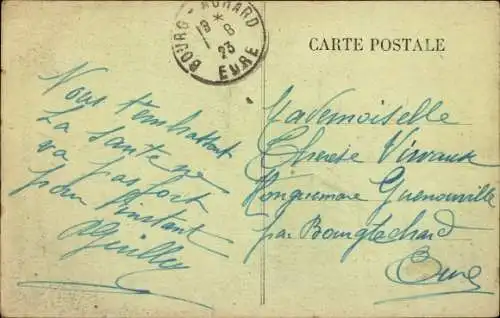 BOURG-ACHARD
*
18-8
23
EURE
CARTE POSTALE
Nous t'embrassons
La santé ne
va pas fort
pour l'instant
Mademoiselle
Therese Vivaux
Honguemare Guenouville
par Bourgtachard
Eure